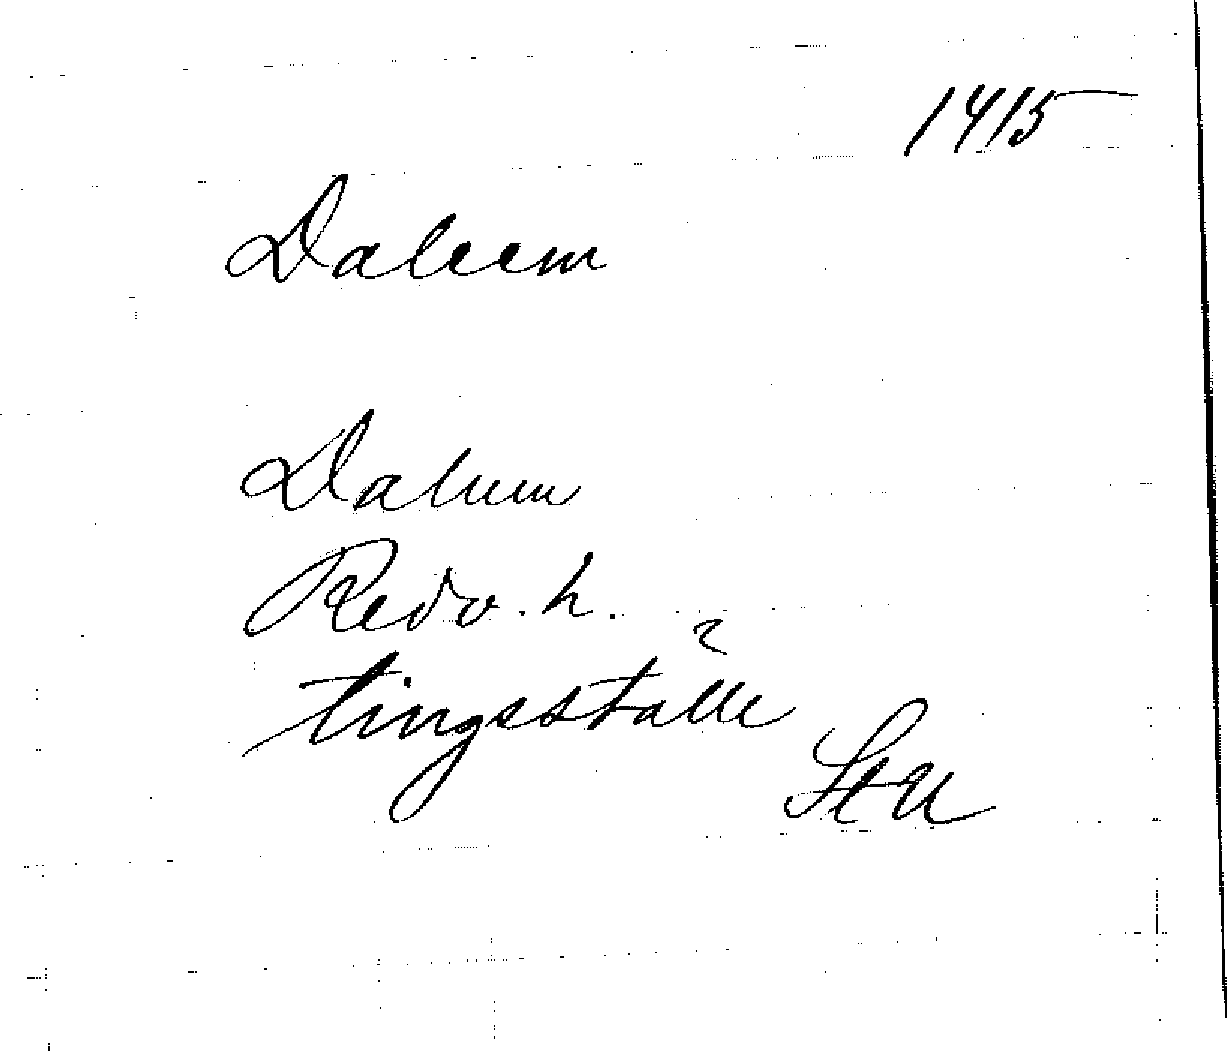 1415
Dalum
Dalum
Redv. h.
tingsställe
StU